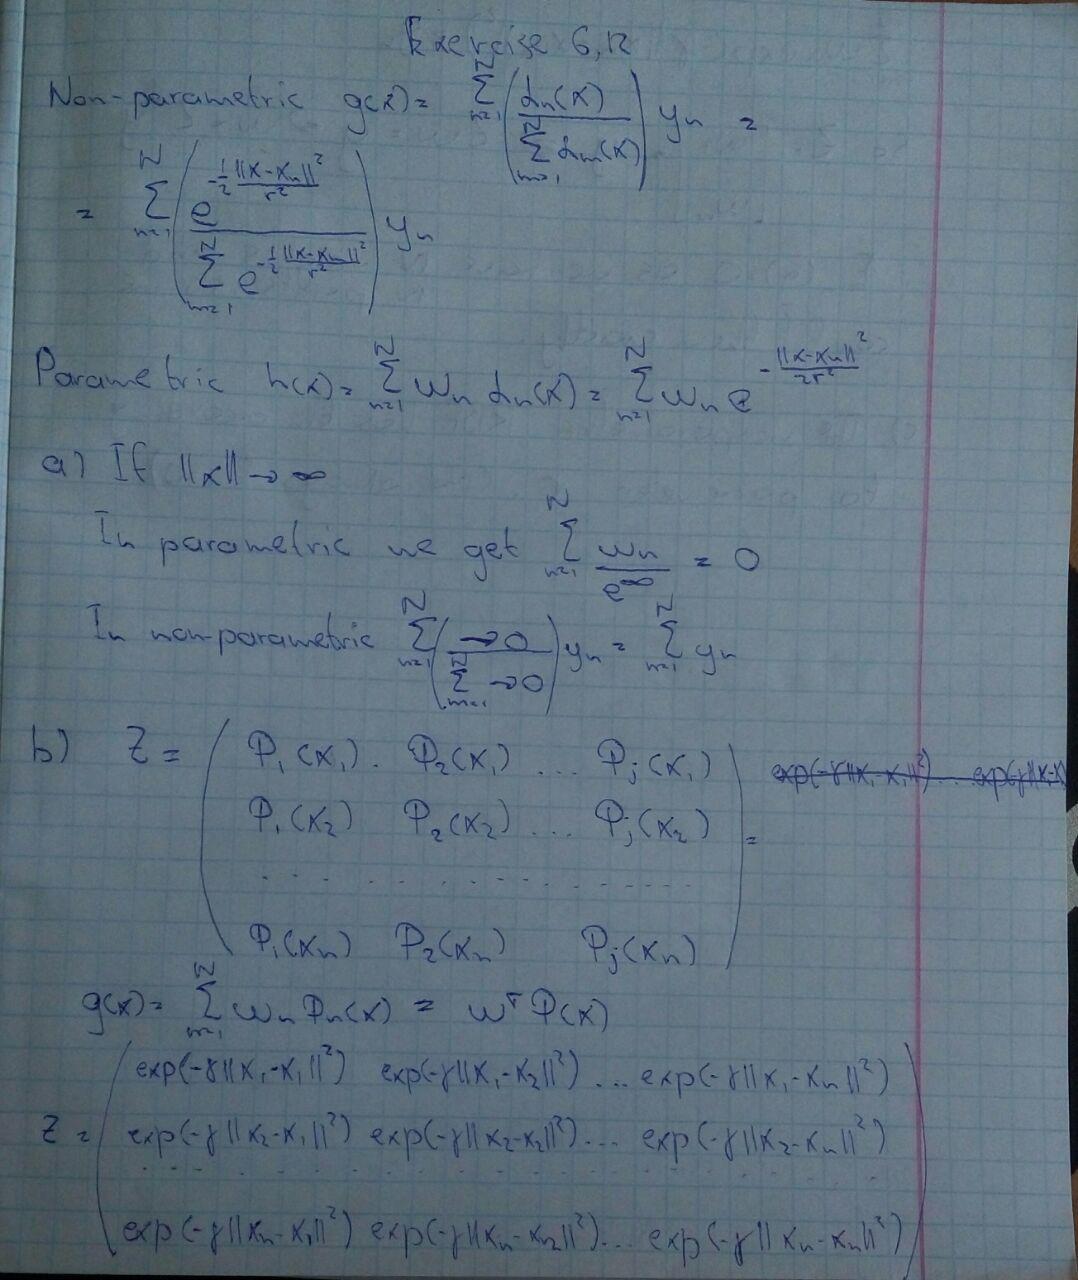 Exercise 6,12
Non-parametric g(x) = \sum_{n=1}^{N} \left( \frac{\alpha_n(x)}{\sum_{m=1}^{N} \alpha_m(x)} \right) y_n =
= \sum_{n=1}^{N} \left( \frac{e^{-\frac{1}{2} \frac{||x-x_n||^2}{r^2}}}{\sum_{m=1}^{N} e^{-\frac{1}{2} \frac{||x-x_m||^2}{r^2}}} \right) y_n
Parametric h(x) = \sum_{n=1}^{N} w_n \alpha_n(x) = \sum_{n=1}^{N} w_n e^{-\frac{||x-x_n||^2}{2r^2}}
a) If ||x|| → ∞
In parametric we get \sum_{n=1}^{N} \frac{w_n}{e^{∞}} = 0
In non-parametric \sum_{n=1}^{N} \left( \frac{→0}{\sum_{m=1}^{N} →0} \right) y_n = \sum_{n=1}^{N} y_n
b) Z = ( Φ_1(x_1) . Φ_2(x_1) ... Φ_j(x_1)
Φ_1(x_2) Φ_2(x_2) ... Φ_j(x_2)
. . . . . . . . . . . . . . .
Φ_1(x_n) Φ_2(x_n) Φ_j(x_n) ) =
g(x) = \sum_{n=1}^{N} w_n Φ_n(x) = w^T Φ(x)
Z = ( exp(-γ||x_1-x_1||^2) exp(-γ||x_1-x_2||^2) ... exp(-γ||x_1-x_n||^2)
exp(-γ||x_2-x_1||^2) exp(-γ||x_2-x_2||^2) ... exp(-γ||x_2-x_n||^2)
. . . . . . . . . . . . . . .
exp(-γ||x_n-x_1||^2) exp(-γ||x_n-x_2||^2) ... exp(-γ||x_n-x_n||^2) )